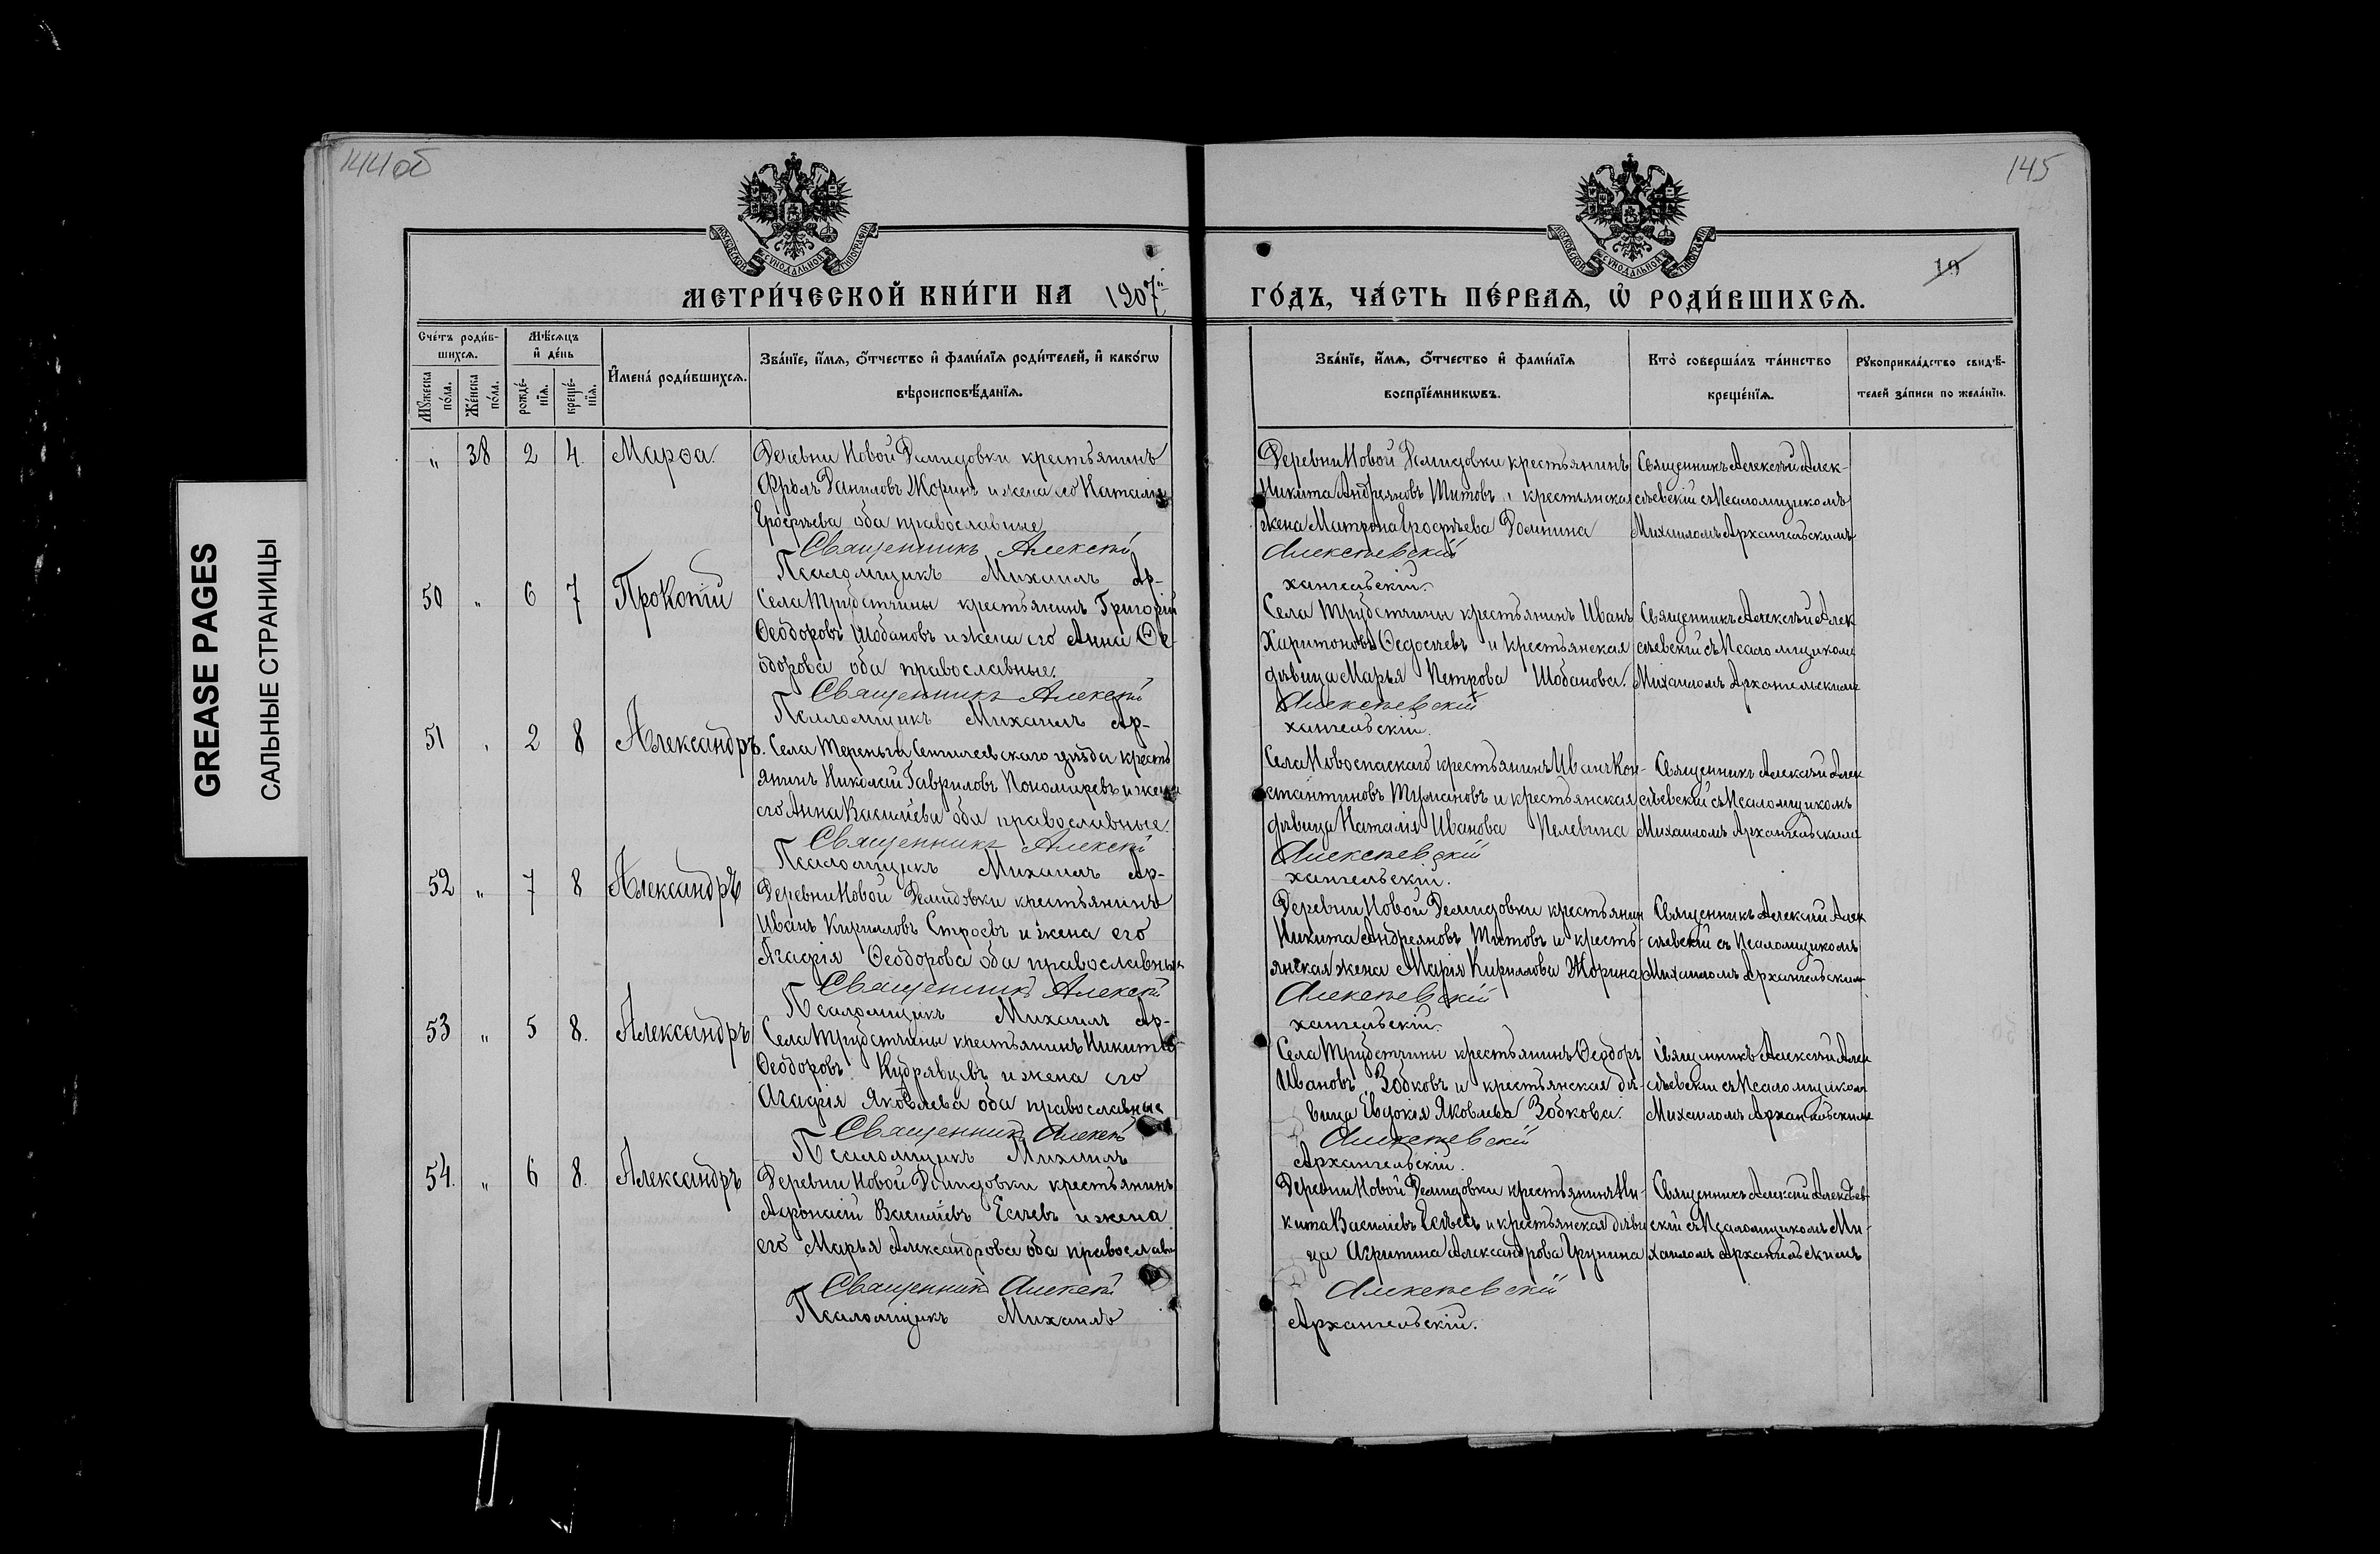 144 об
145
МОСКОВСКОЙ СѴНОДАЛЬНОЙ ТИПОГРАФІИ
МОСКОВСКОЙ СѴНОДАЛЬНОЙ ТИПОГРАФІИ
19
МЕТРИ́ЧЕСКОЙ КНИ́ГИ НА 1907й
ГО́ДЪ, ЧА́СТЬ ПЕ́РВАѦ, Ѡ҆ РОДИ́ВШИХСѦ.
GREASE PAGES
САЛЬНЫЕ СТРАНИЦЫ
Сче́тъ роди́в-
шихсѧ.
Мꙋжеска по́ла.
Же́нска по́ла.
Мѣ́сѧцъ
и҆ де́нь
рожде́-
нїѧ.
креще́-
нїѧ.
И҆мена́ роди́вшихсѧ.
Зва́нїе, и҆́мѧ, ѻ҆́тчество и҆ фами́лїѧ роди́телей, и҆ како́гѡ
вѣроисповѣ́данїѧ.
Зва́нїе, и҆́мѧ, ѻ҆́тчество и҆ фами́лїѧ
воспрїе́мникѡвъ.
Кто̀ соверша́лъ та́инство
креще́нїѧ.
Рꙋкоприкла́дство свидѣ́-
телей за́писи по жела́нїю.
" 38 2 4. Марѳа.
Деревни Новой Демидовки крестьянинъ
Фролъ Даниловъ Жоринъ и жена его Наталія
Ерофѣева оба православные
Священникъ Алексѣй
Псаломщикъ Михаилъ Ар-
Деревни Новой Демидовки крестьянинъ
Никита Андреяновъ Титовъ и крестьянская
жена Матрона Ерофѣева Домнина
Алексѣевскій
хангельскій.
Священникъ Алексѣй Алек-
сѣевскій съ Псаломщикомъ
Михаиломъ Архангельскимъ
50 " 6 7 Прокопій
Села Трубетчины крестьянинъ Григорій
Ѳеодоровъ Шобановъ и жена его Анна Ѳе-
одорова оба православные.
Священникъ Алексѣй
Псаломщикъ Михаилъ Ар-
Села Трубетчины крестьянинъ Иванъ
Харитоновъ Ѳедосѣевъ и крестьянская
дѣвица Марья Петрова Шобанова.
Алексѣевскій
хангельскій.
Священникъ Алексѣй Алек
сѣевскій съ Псаломщикомъ
Михаиломъ Архангельскимъ
51 " 2 8 Александръ.
Села Тереньги Сенгилеевскаго уѣзда кресть
янинъ Николай Гавриловъ Пономаревъ и жена
его Анна Васильева оба православные.
Священникъ Алексѣй
Псаломщикъ Михаилъ Ар-
Села Новоспаскаго крестьянинъ Иванъ Кон-
стантиновъ Тумановъ и крестьянская
дѣвица Наталія Иванова Пелевина
Алексѣевскій
хангельскій.
Священникъ Алексѣй Алек
сѣевскій съ Псаломщикомъ
Михаиломъ Архангельскимъ
52 " 7 8 Александръ
Деревни Новой Демидовки крестьянинъ
Иванъ Кирилловъ Строевъ и жена его
Агафія Ѳеодорова оба православные
Священникъ Алексѣй
Псаломщикъ Михаилъ Ар-
Деревни Новой Демидовки крестьянин
Никита Андреяновъ Титовъ и кресть-
янская жена Марія Кириллова Жорина
Алексѣевскій
хангельскій.
Священникъ Алексѣй Алек
сѣевскій съ Псаломщикомъ
Михаиломъ Архангельским
53 " 5 8. Александръ
Села Трубетчины крестьянинъ Никита
Ѳеодоровъ Кудрявцевъ и жена его
Агафія Яковлева оба православные
Священникъ Алексѣй
Псаломщикъ Михаилъ
Села Трубетчины крестьянинъ Ѳеодоръ
Ивановъ Зобковъ и крестьянская дѣ-
вица Евдокія Яковлева Зобкова.
Алексѣевскій
Архангельскій.
Священникъ Алексѣй Алек
сѣевскій съ Псаломщиком
Михаиломъ Архангельскимъ
54. " 6 8. Александръ
Деревни Новой Демидовки крестьянинъ
Афонасій Васильевъ Есѣевъ и жена
его Марья Александрова оба православн
Священникъ Алексѣй
Псаломщикъ Михаилъ
Деревни Новой Демидовки крестьянинъ Ни-
кита Васильевъ Есѣевъ и крестьянская дѣви
ца Агрипина Александрова Грунина
Алексѣевскій
Архангельскій.
Священникъ Алексѣй Алексѣев-
скій съ Псаломщикомъ Ми-
хаиломъ Архангельскимъ